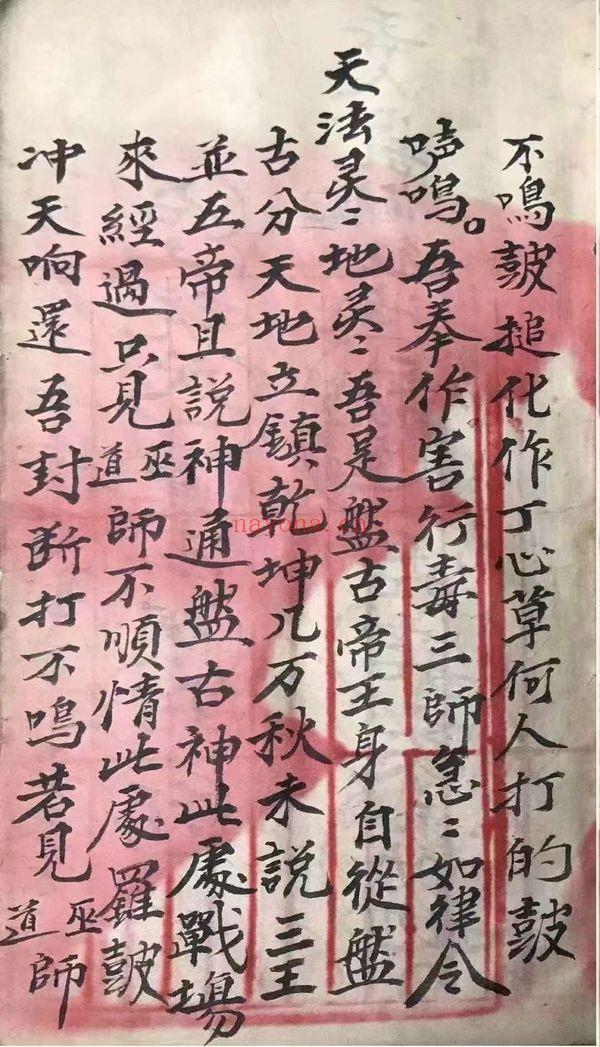 不鳴鼓搥化作丁心草何人打的鼓
㖓鳴。吾奉作害行毒三師急〻如律令
天法灵〻地灵〻吾是盤古帝王身自從盤
古分天地立鎮乾坤几万秋未説三王
並五帝且説神通盤古神此處戰場
來經過只見道巫師不順情此處羅鼓
冲天响還吾封断打不鳴若見道巫師